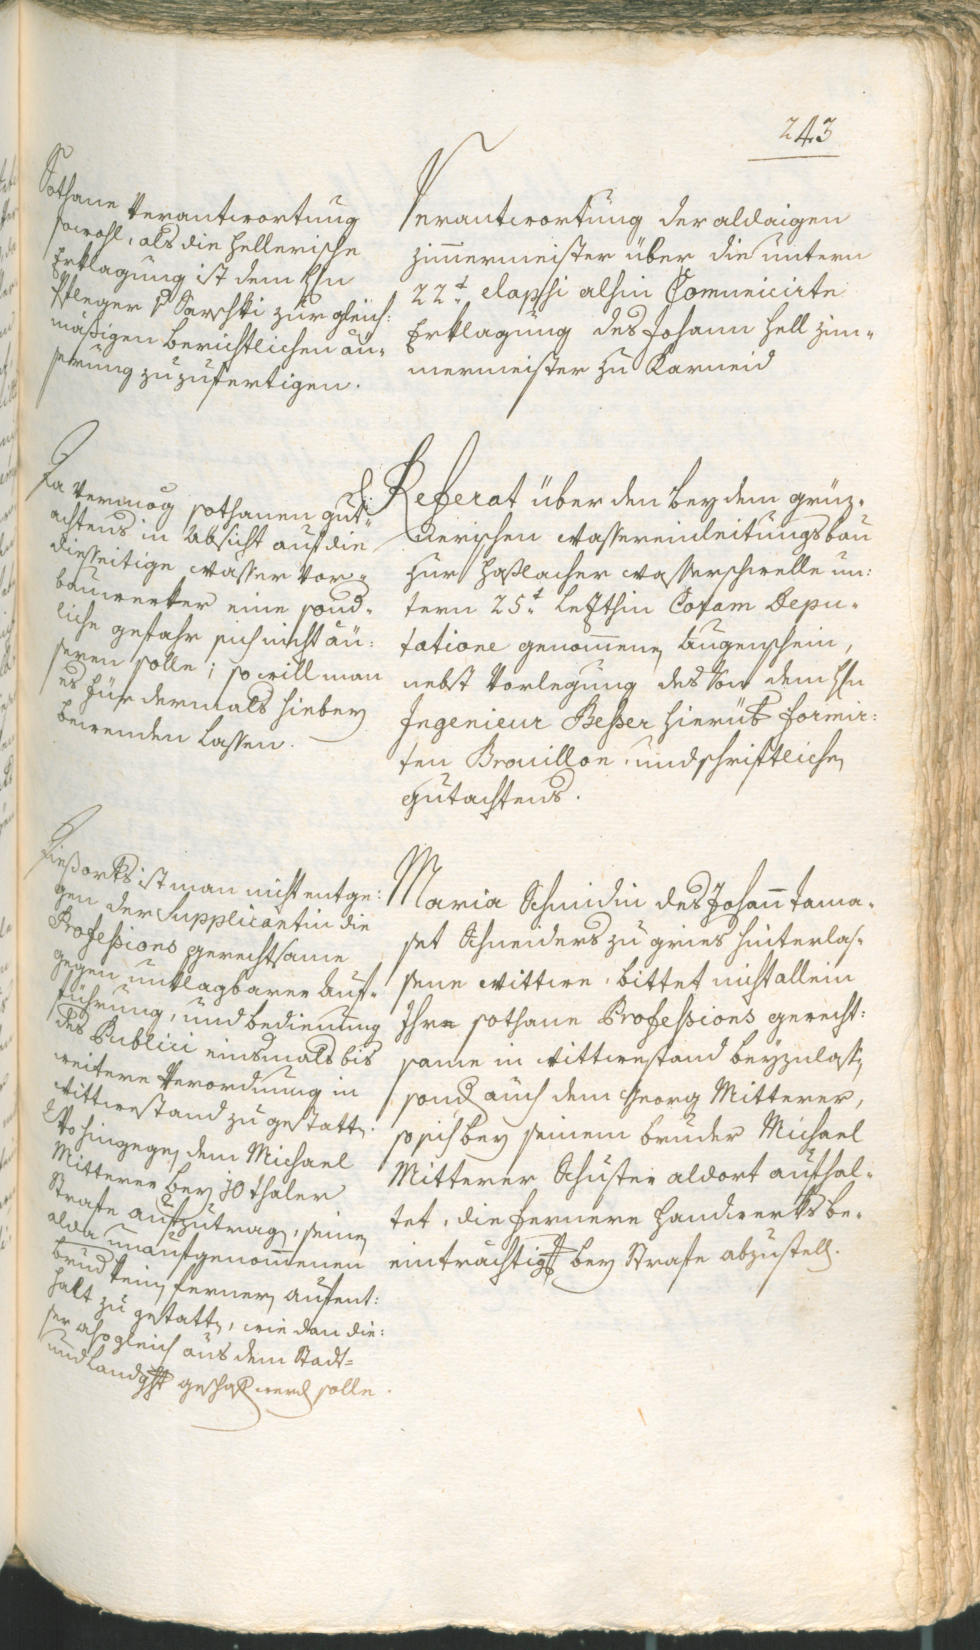 243
Sothane Verantwortung
sowohl, als die Hellerische
Erklagung ist dem Hn
Pfleger v Sarschki zur gleich:
mäßigen berichtlichen äu„
serung zuzufertigen.
Verantwortung der aldaigen
Zimmermeister über die untern
22t elapsi alhin Comunicirte
Erklagung des Johann Hell Zim„
mermeister zu Karneid
Da vermög sothanen gut„
achtens in Absicht auf die
diesseitige Wasser Vor„
bauwerker eine sönd„
liche gefahr sich nicht äu:
seren solle; so will man
es für dermals hiebey
bewenden lassen.
Referat über den bey dem grüz„
nerischen Wassereinleitungsbau
zur Haslacher Wasserschwelle un:
tern 25t letzthin Coram Depu„
tatione genommenen Augenschein,
nebst Vorlegung des von dem Hn
Ingenieur Beßer hierüb formir:
ten Brouillon, und schriftlichen
gutachtens.
Dießorts ist man nicht entge:
gen der Supplicantin die
Profeßions gerechtsame
gegen unklagbarer Auf„
führung, und bedienung
des Publici einsmals bis
weitere Verordnung in
Wittwestand zu gestatten.
Wohingegen dem Michael
Mitterer bey 10 thaler
Strafe aufzutragen, seinen
alda unaufgenommenen
brud kein fernern aufent:
halt zu gestatten, wie dan die:
ser alsogleich aus dem Stadt=
und Landght geschaft werd solle.
Maria Schmidin des Johann tama„
set Schneiders zu gries hinterlas„
sene Wittwe, bittet nicht allein
Ihre sothane Profeßions gerecht:
same in Wittwestand beyzulassen
sond auch dem Georg Mitterer,
so sich bey seinem bruder Michael
Mitterer Schuster aldort aufhal„
tet, die fernere Handwerks be„
einträchtigg bey Strafe abzustell.